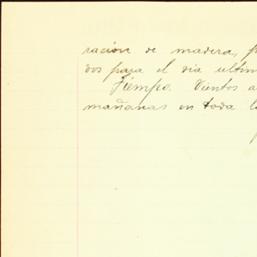 ración de madera, p
dos para el dia ultim
Tiempo. Vientos a
mañanas en toda l